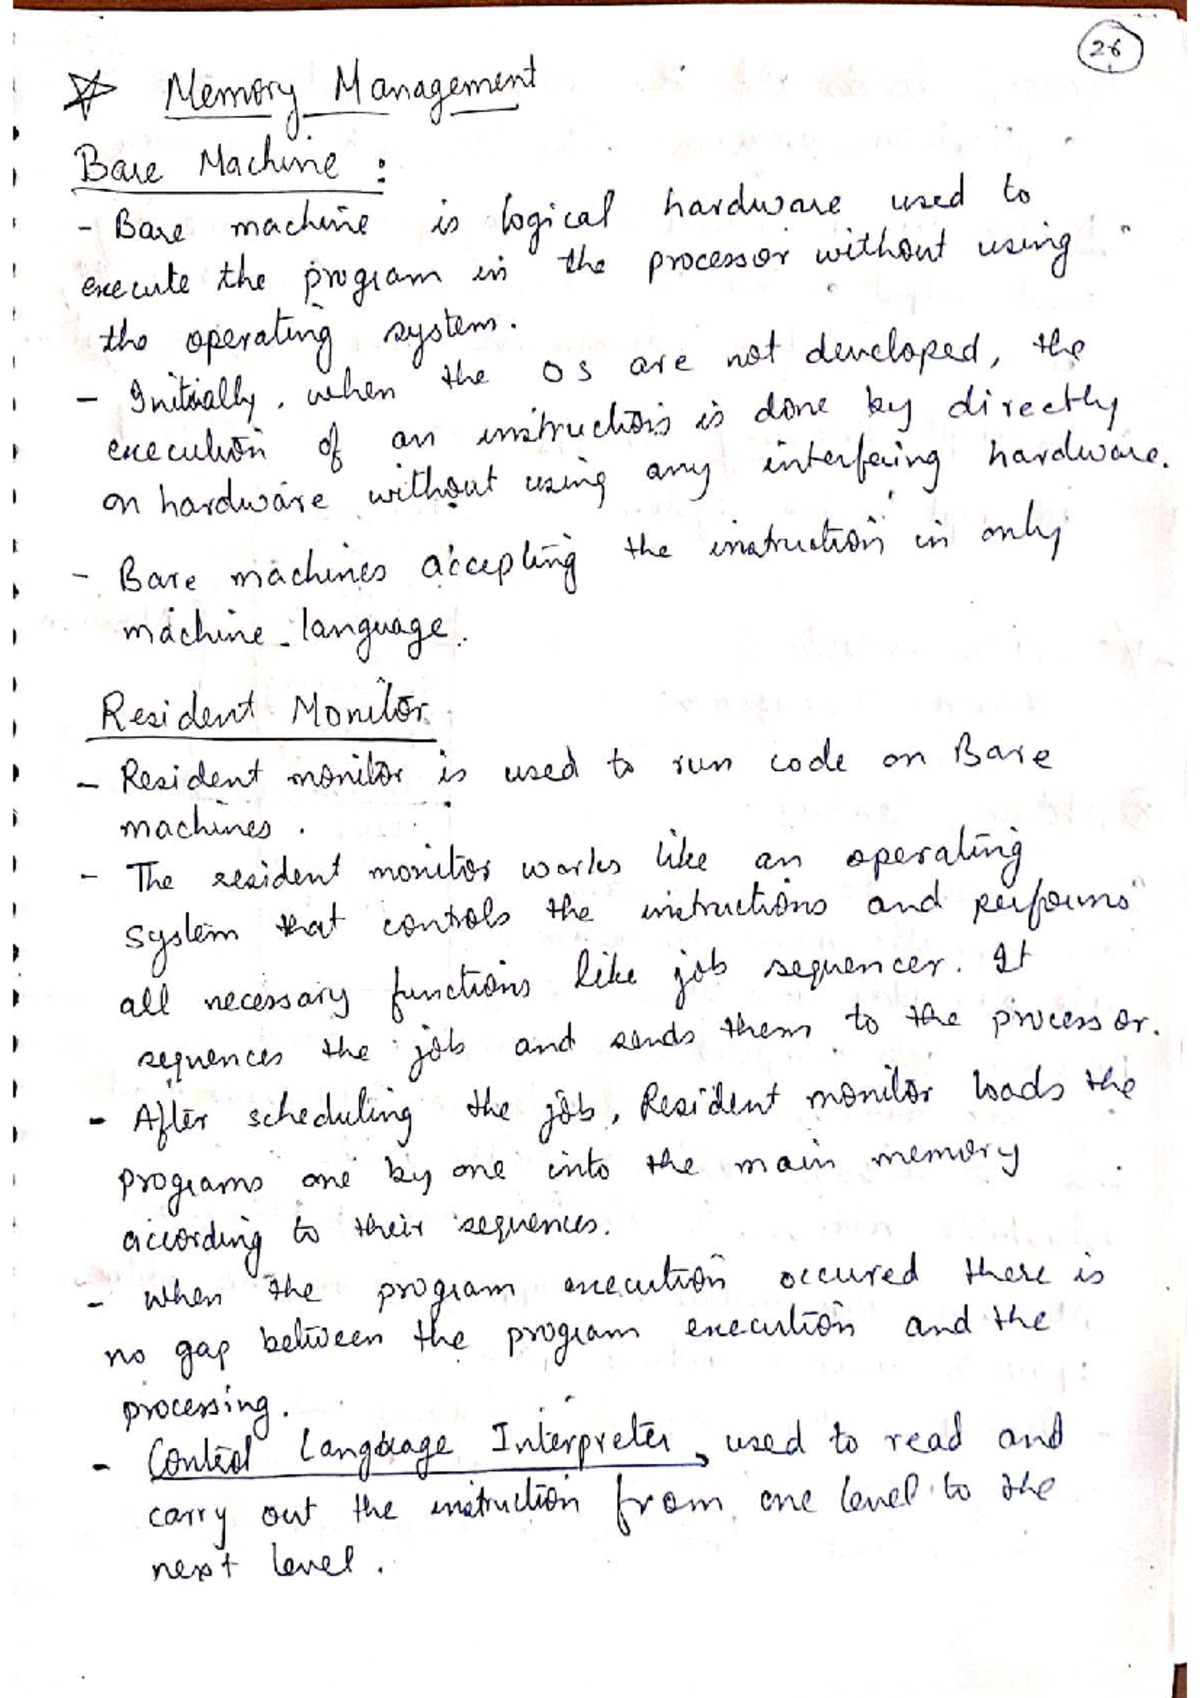 26
Memory Management
Bare Machine :
- Bare machine is logical hardware used to
execute the program in the processor without using
the operating system.
- Initially, when the OS are not developed, the
execution of an instruction is done by directly
on hardware without using any interfering hardware.
- Bare machines accepting the instruction in only
machine language.
Resident Monitor
- Resident monitor is used to run code on Bare
machines.
- The resident monitor works like an operating
system that controls the instructions and performs
all necessary functions like job sequencer. It
sequences the job and sends them to the processor.
- After scheduling the job, Resident monitor loads the
programs one by one into the main memory
according to their sequences.
- when the program execution occured there is
no gap between the program execution and the
processing.
- Control Language Interpreter, used to read and
carry out the instruction from one level to the
next level.